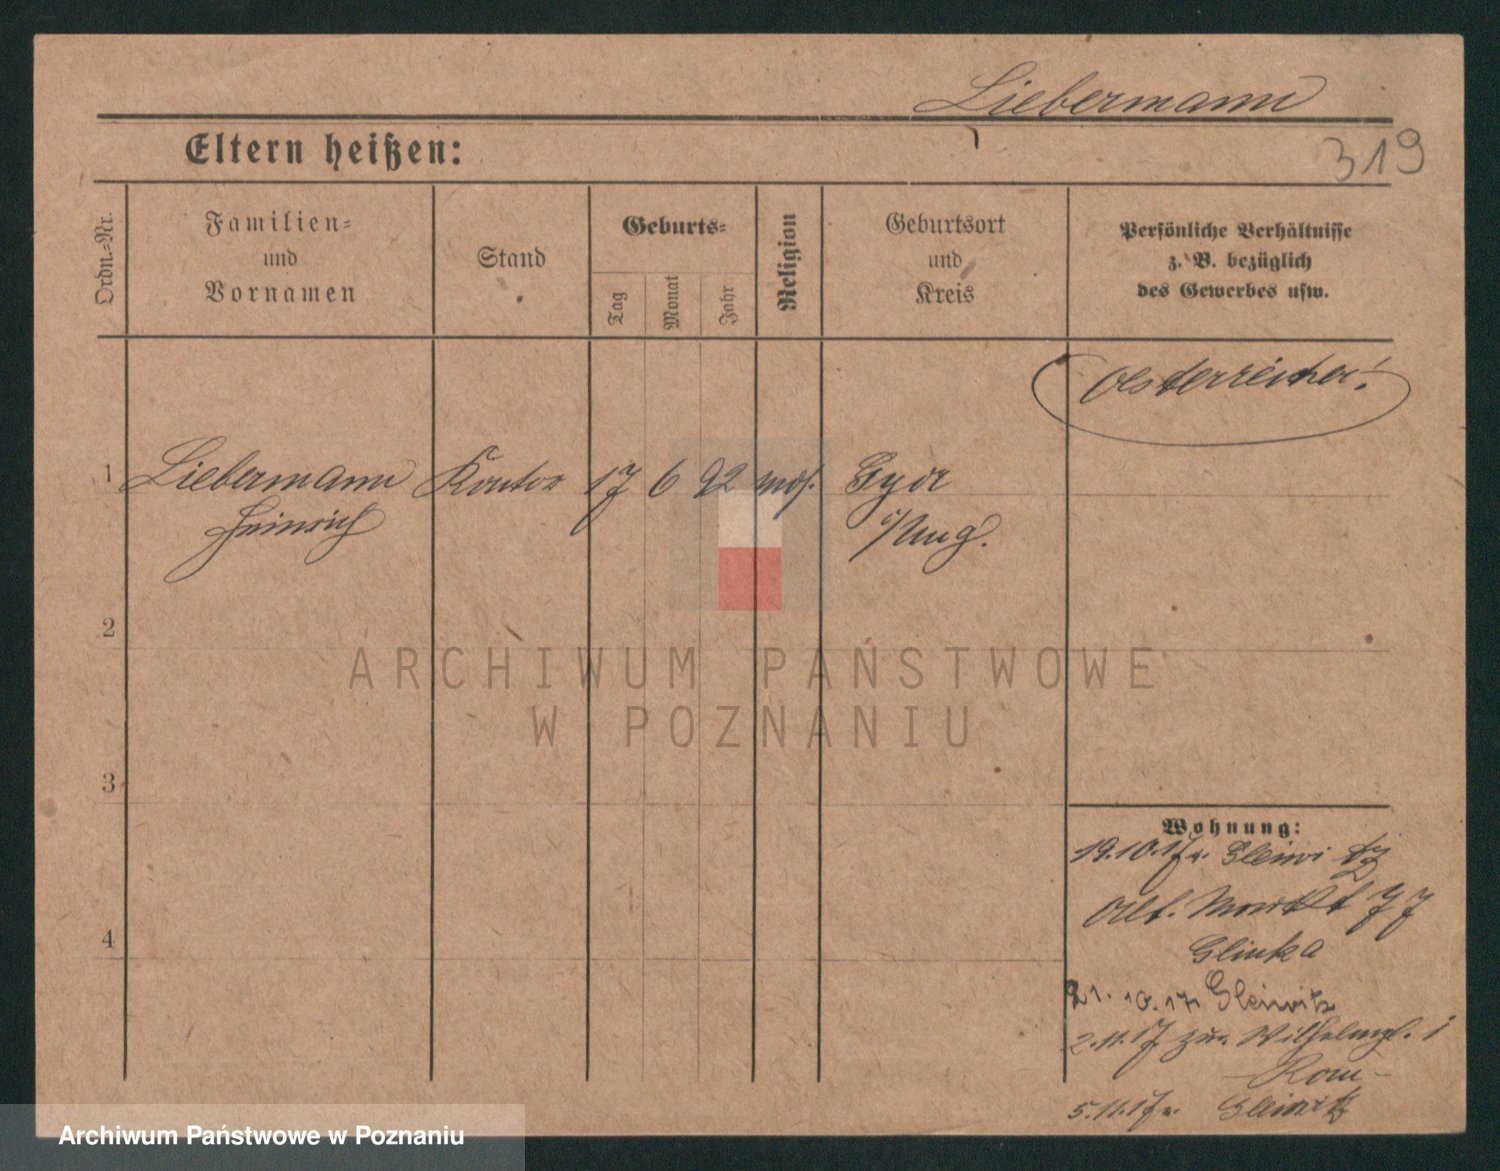 Liebermann
319
Eltern heißen:
Ordn.-Nr.
Familien-
und
Vornamen
Stand
Geburts-
Tag
Monat
Jahr
Religion
Geburtsort
und
Kreis
Persönliche Verhältnisse
z. B. bezüglich
des Gewerbes usw.
Oesterreicher!
1 Liebermann Kontor 17 6 92 mos. Györ
Heinrich i/Ung.
2
3
4
Wohnung:
19.10.17 v. Gleiwitz
Alt. Markt 77
Glinka
21.10.17 Gleiwitz
2.11.17 zur. Wilhelmpl. 1
5.11.17 n. Gleiwitz
ARCHIWUM PAŃSTWOWE
W POZNANIU
Archiwum Państwowe w Poznaniu